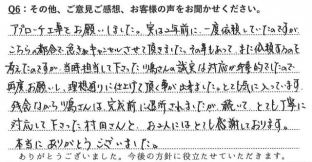 Q6：その他、ご意見ご感想、お客様の声をお聞かせください。
アプローチ工事をお願いしました。実は2年前に一度依頼していたのですが、
こちらの都合で急きょキャンセルさせて頂きました。その事もあって、また依頼するのを
考えたのですが、当時担当して下さった川嶋さんの誠実な対応が印象的でしたので
再度お願いし、理想通りに仕上げて頂く事が出来ました。とても気に入っています。
残念ながら川嶋さんは、完成前に退所されましたが、続いて、とても丁寧に
対応して下さった村田さんと、お2人にはとても感謝しております。
本当にありがとうございました。
ありがとうございました。今後の方針に役立たせていただきます。